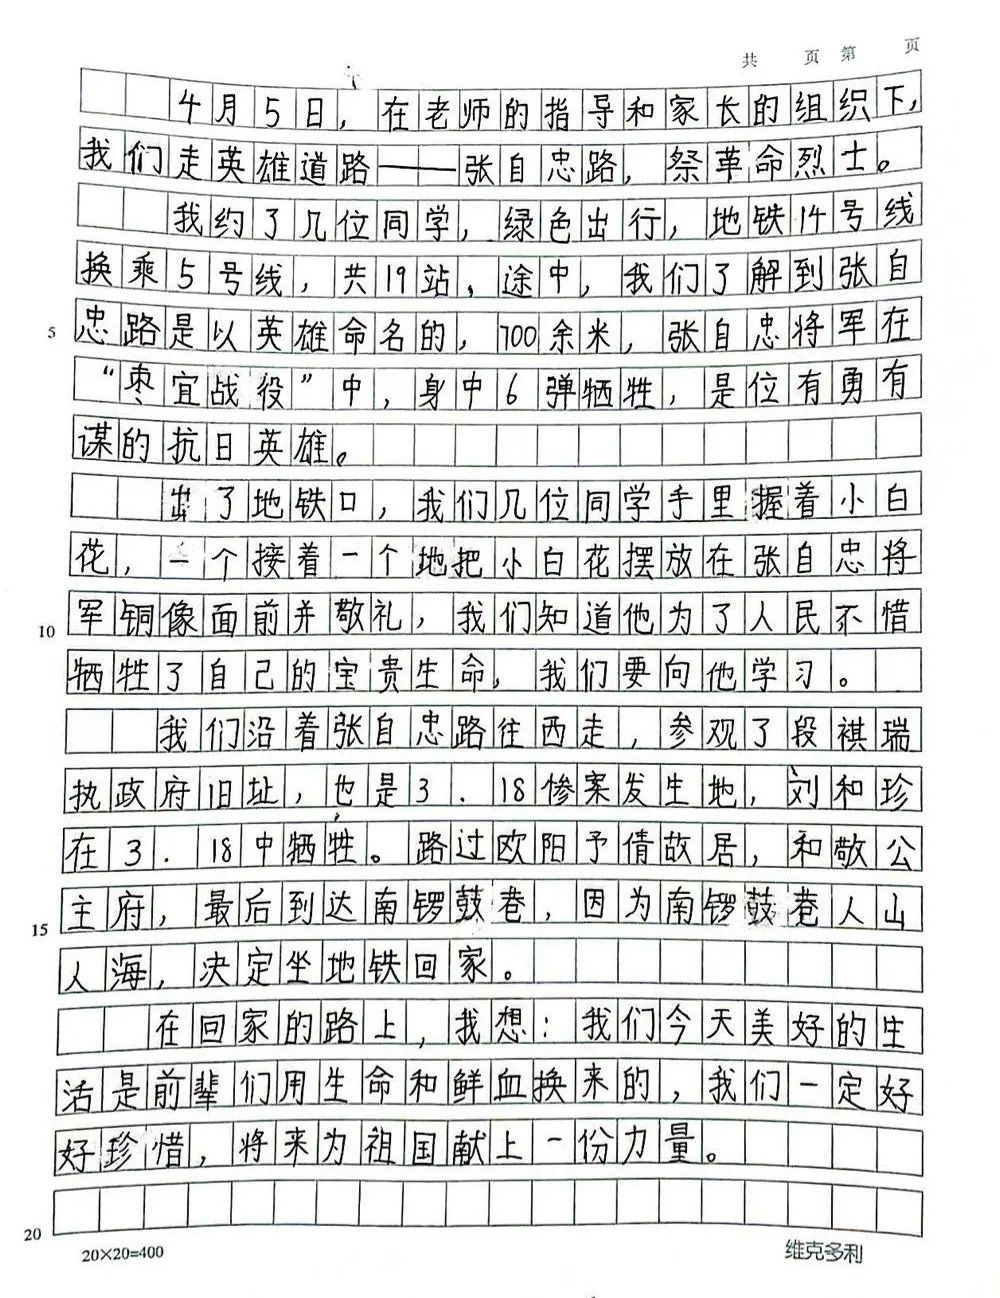 共 页 第 页
4月5日，在老师的指导和家长的组织下，
我们走英雄道路——张自忠路，祭革命烈士。
我约了几位同学，绿色出行，地铁14号线
换乘5号线，共19站，途中，我们了解到张自
5 忠路是以英雄命名的，700余米，张自忠将军在
“枣宜战役”中，身中6弹牺牲，是位有勇有
谋的抗日英雄。
出了地铁口，我们几位同学手里握着小白
花，一个接着一个地把小白花摆放在张自忠将
10 军铜像面前并敬礼，我们知道他为了人民不惜
牺牲了自己的宝贵生命，我们要向他学习。
我们沿着张自忠路往西走，参观了段祺瑞
执政府旧址，也是3.18惨案发生地，刘和珍
在3.18中牺牲。路过欧阳予倩故居，和敬公
15 主府，最后到达南锣鼓巷，因为南锣鼓巷人山
人海，决定坐地铁回家。
在回家的路上，我想：我们今天美好的生
活是前辈们用生命和鲜血换来的，我们一定好
好珍惜，将来为祖国献上一份力量。
20
20×20=400 维克多利